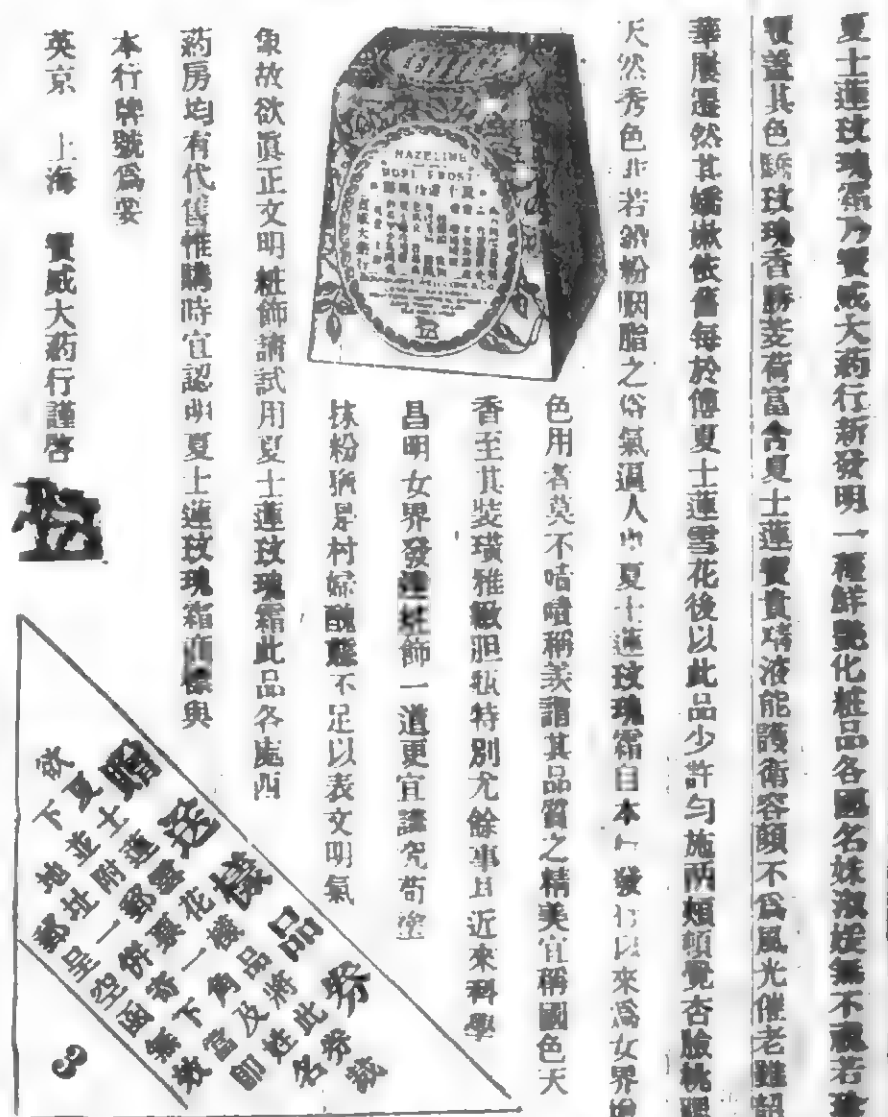 夏士蓮玫瑰霜乃寶威大葯行新發明一種鮮艷化粧品各國名姝淑媛無不視若
寶蓋其色驕玫瑰香勝菱荷富含夏士蓮寶貴精液能護衛容顏不爲風光催老雖韶
華屢湮然其嬌嫩依舊每於傅夏士蓮雪花後以此品少許勻施兩頰頓覺杏臉桃腮
天然秀色非若鉛粉胭脂之俗氣逼人也夏士蓮玫瑰霜自本行發行以來爲女界
色用者莫不嘖嘖稱羨謂其品質之精美宜稱國色天
香至其裝璜雅緻胆瓶特別尤餘事且近來科學
昌明女界發達粧飾一道更宜講究苟塗
抹粉猶是村婦醜態不足以表文明氣
象故欲眞正文明粧飾請試用夏士蓮玫瑰霜此品各處西
葯房均有代售惟購時宜認明夏士蓮玫瑰霜商標與
本行牌號爲要
英京 上海 寶威大葯行謹啓
HAZELINE
FROST
贈送樣品券
欲夏士蓮雪花樣品將此券裁
下並附郵票一角及姓名
地址一併寄下當即
郵呈空函無效
3